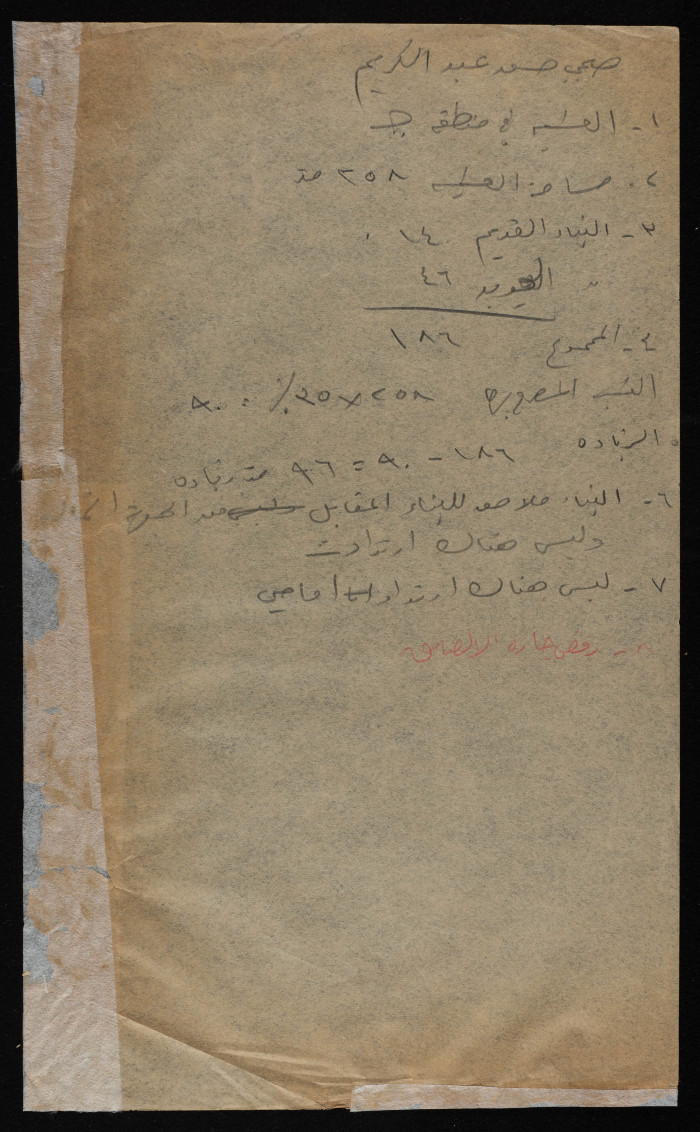 صبحي حسعد عبد الكريم
١- القسيمه في منطقه ج
٢- مساحة القسيمه ٢٥٨ متر
٣- البناء القديم ١٤٠
" الجديد ٤٦
٤- المجموع ١٨٦
النسبه المصرح بها ٢٥٨ × ٣٥٪ = ٩٠
٥ الزياده ١٨٦ - ٩٠ = ٩٦ متر زياده
٦- البناء ملاصق للبناء المقابل من الجهة
وليس هناك ارتدادت
٧- ليس هناك ارتداد امامي
٨- رفض جاره الالتصاق